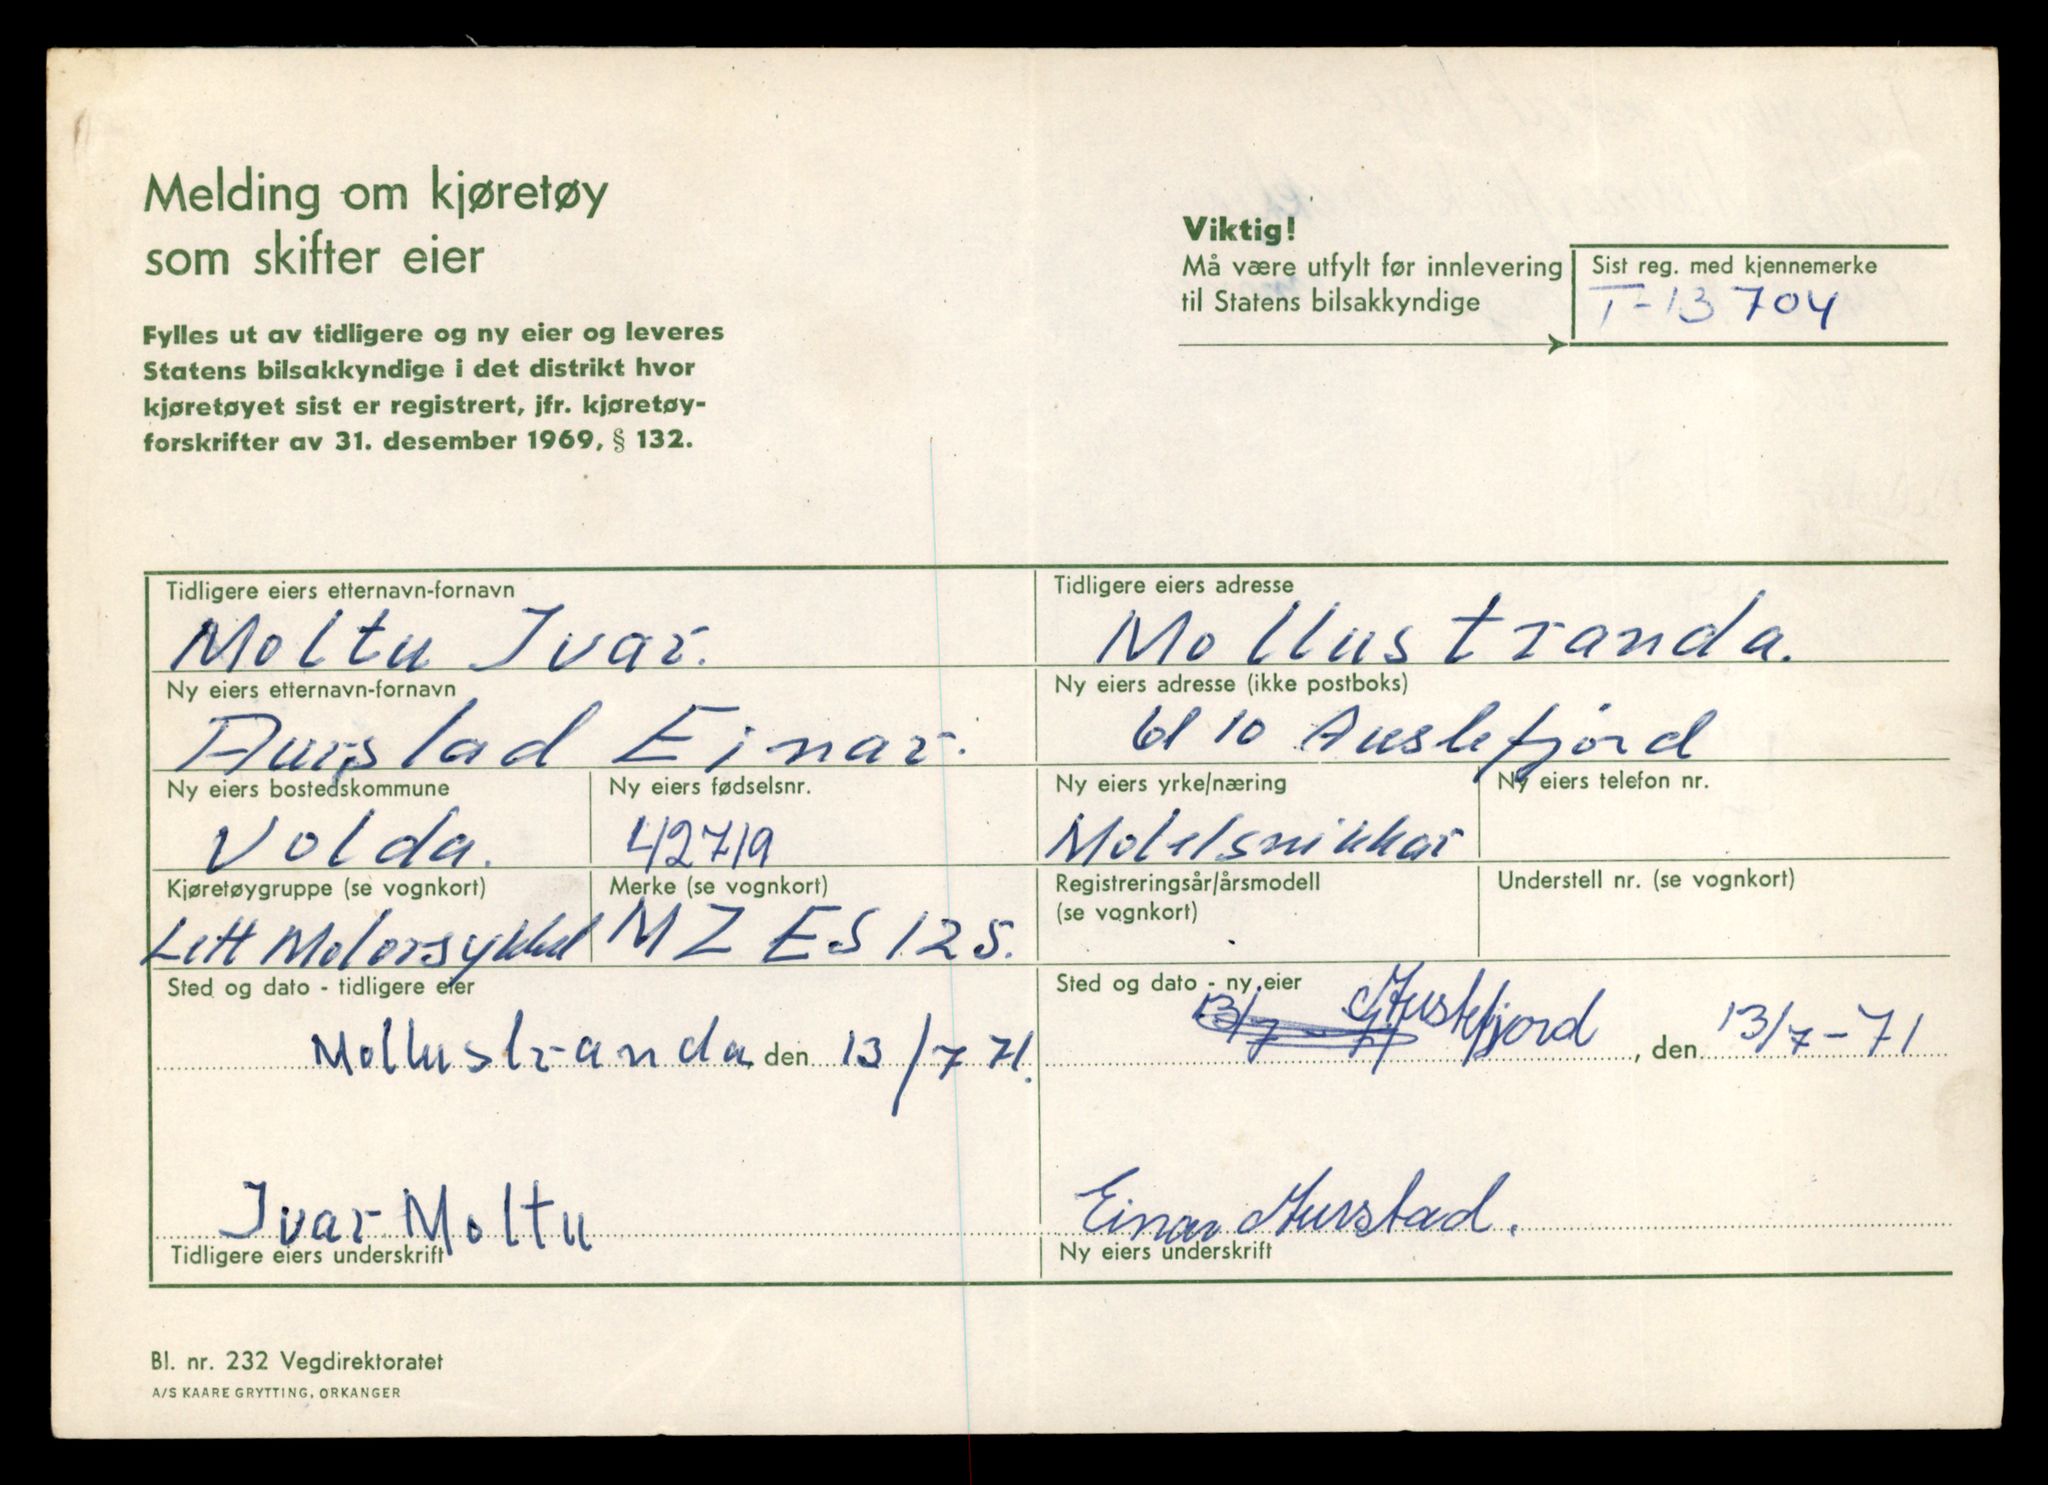 Melding om kjøretøy
som skifter eier
Fylles ut av tidligere og ny eier og leveres
Statens bilsakkyndige i det distrikt hvor
kjøretøyet sist er registrert, jfr. kjøretøy-
forskrifter av 31. desember 1969, § 132.
Viktig!
Må være utfylt før innlevering
til Statens bilsakkyndige
Sist reg. med kjennemerke
T-13704
Tidligere eiers etternavn-fornavn
Moltu Ivar.
Tidligere eiers adresse
Mollustranda.
Ny eiers etternavn-fornavn
Aurstad Einar.
Ny eiers adresse (ikke postboks)
6110 Austefjord
Ny eiers bostedskommune
Volda.
Ny eiers fødselsnr.
42719
Ny eiers yrke/næring
Møbelsnikkar
Ny eiers telefon nr.
Kjøretøygruppe (se vognkort)
Lett Motorsykkel
Merke (se vognkort)
MZ ES 125.
Registreringsår/årsmodell
(se vognkort)
Understell nr. (se vognkort)
Sted og dato - tidligere eier
Mollustranda, den 13/7 71.
Sted og dato - ny eier
13/7 Austefjord, den 13/7-71
Ivar Moltu
Tidligere eiers underskrift
Einar Aurstad.
Ny eiers underskrift
Bl. nr. 232 Vegdirektoratet
A/S KAARE GRYTTING, ORKANGER